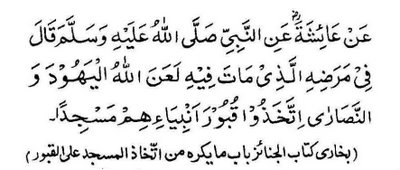 عَنْ عَائِشَةَؓ عَنِ النَّبِيِّ صَلَّى اللهُ عَلَيْهِ وَسَلَّمَ قَالَ
فِيْ مَرَضِهِ الَّذِيْ مَاتَ فِيْهِ لَعَنَ اللهُ الْيَهُوْدَ وَ
النَّصَارٰى اِتَّخَذُوْا قُبُوْرَ اَنْبِيَاءِهِمْ مَسْجِدًا۔
(بخاری کتاب الجنائز باب ما یکرہ من اتّخاذ المسجد علی القبور)